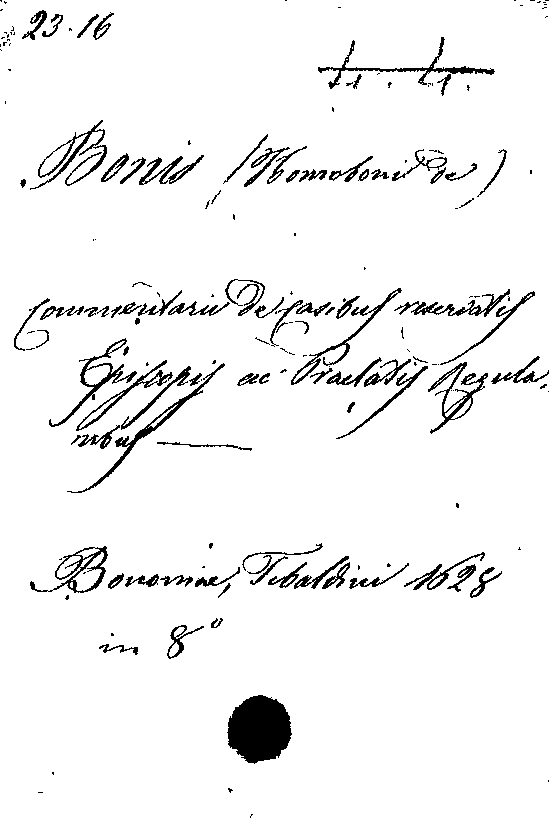 23.16
Bonis (Homoboni de)
Commentarii de casibus reservatis
Episcopis ac Praelatis Regula-
ribus
Bononiae, Tebaldini 1628
in 8°